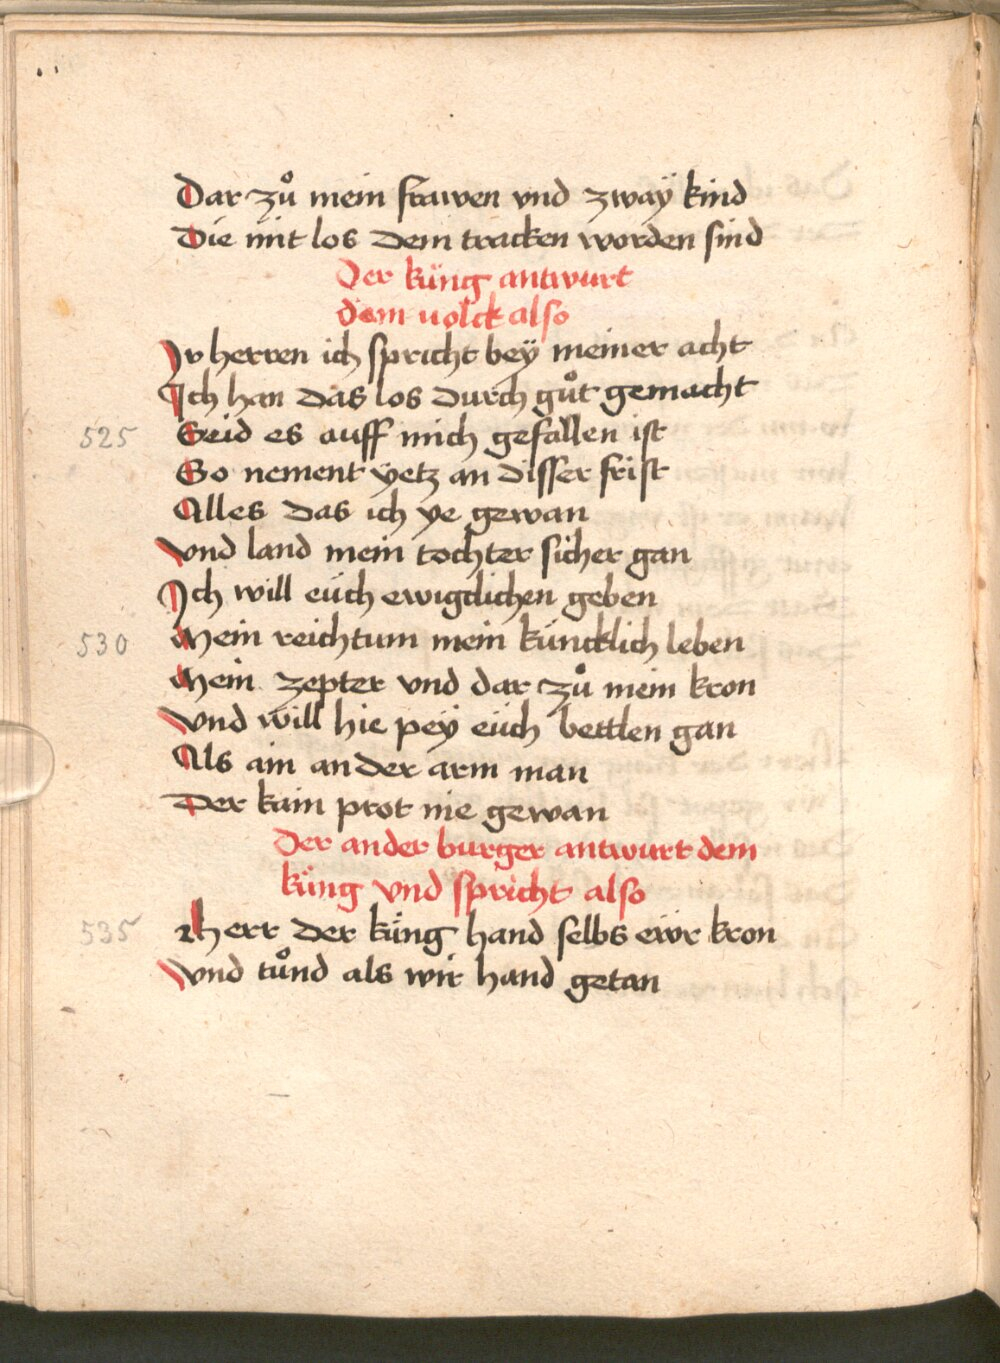 Dar zů mein frawen vnd zwaÿ kind
Die mit los dem tracken worden sind
Der küng antwurt
dem uolck also
Ir herren ich spricht beÿ meiner acht
Ich han das los durch gůt gemacht
525 Seid es auff mich gefallen ist
So nement ÿetz an disser frist
Alles das ich ye gewan
Vnd land mein tochter sicher gan
Ich will eüch ewigclichen geben
530 Mein reichtum mein küncklich leben
Mein zepter vnd dar zů mein kron
Vnd will hie peÿ eüch bettlen gan
Als ain ander arm man
Der kain prot nie gewan
Der ander burger antwurt dem
küng vnd spricht also
535 Herr der küng hand selbs ewr kron
Vnd tůnd als wir hand getan